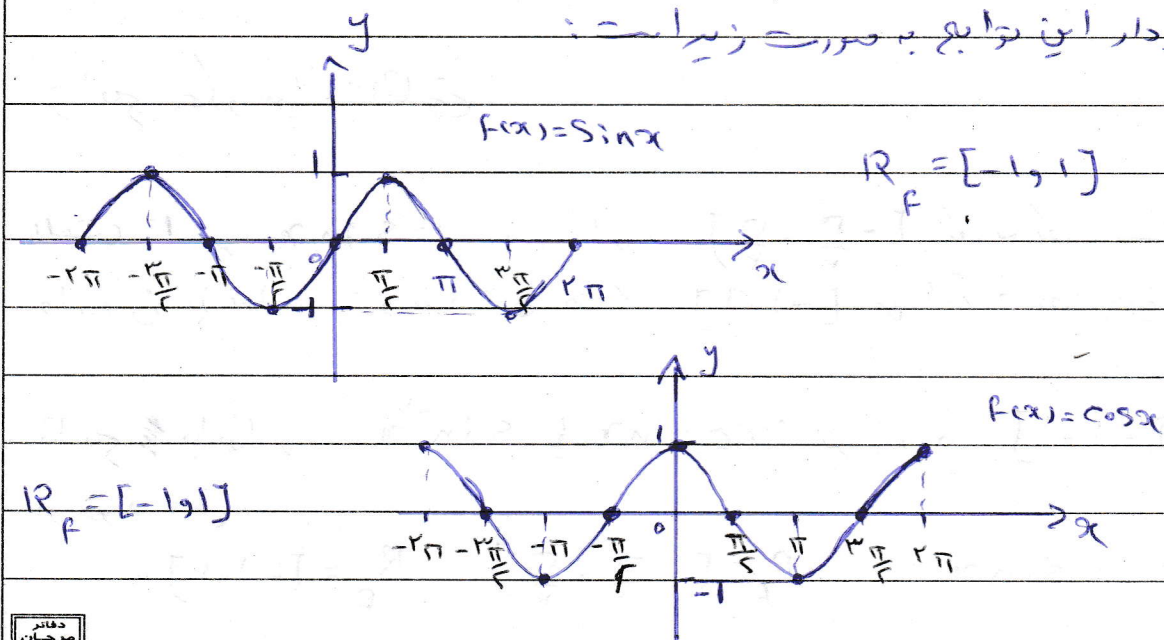 دار این توابع به صورت زیر است:
y
f(x)=Sinx
R_f = [-۱,۱]
۱
-۲π -۳π/۲ -π -π/۲ ۰ π/۲ π ۳π/۲ ۲π
x
-۱
y
f(x)=cosx
۱
R_f = [-۱,۱]
-۲π -۳π/۲ -π -π/۲ ۰ π/۲ π ۳π/۲ ۲π
x
-۱
دفاتر
مرجان